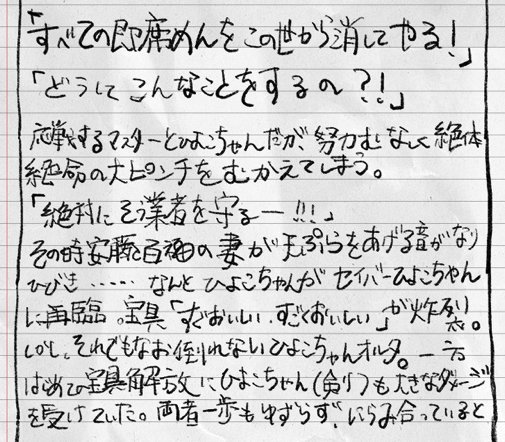 「すべての即席めんをこの世から消してやる!」
「どうしてこんなことをするの?!」
応戦するマスターとひよこちゃんだが、努力むなしく絶体
絶命の大ピンチをむかえてしまう。
「絶対にそう業者を守るー!!!」
その時安藤百福の妻が天ぷらをあげる音がなり
ひびき……なんとひよこちゃんがセイバーひよこちゃん
に再臨。宝具「すごおいしい、すごくおいしい」が炸裂。
しかし、それでもなお倒れないひよこちゃんオルタ。一方
はじめての宝具解放にひよこちゃん(剣)も大きなダメージ
を受けていた。両者一歩もゆずらず、にらみ合っていると